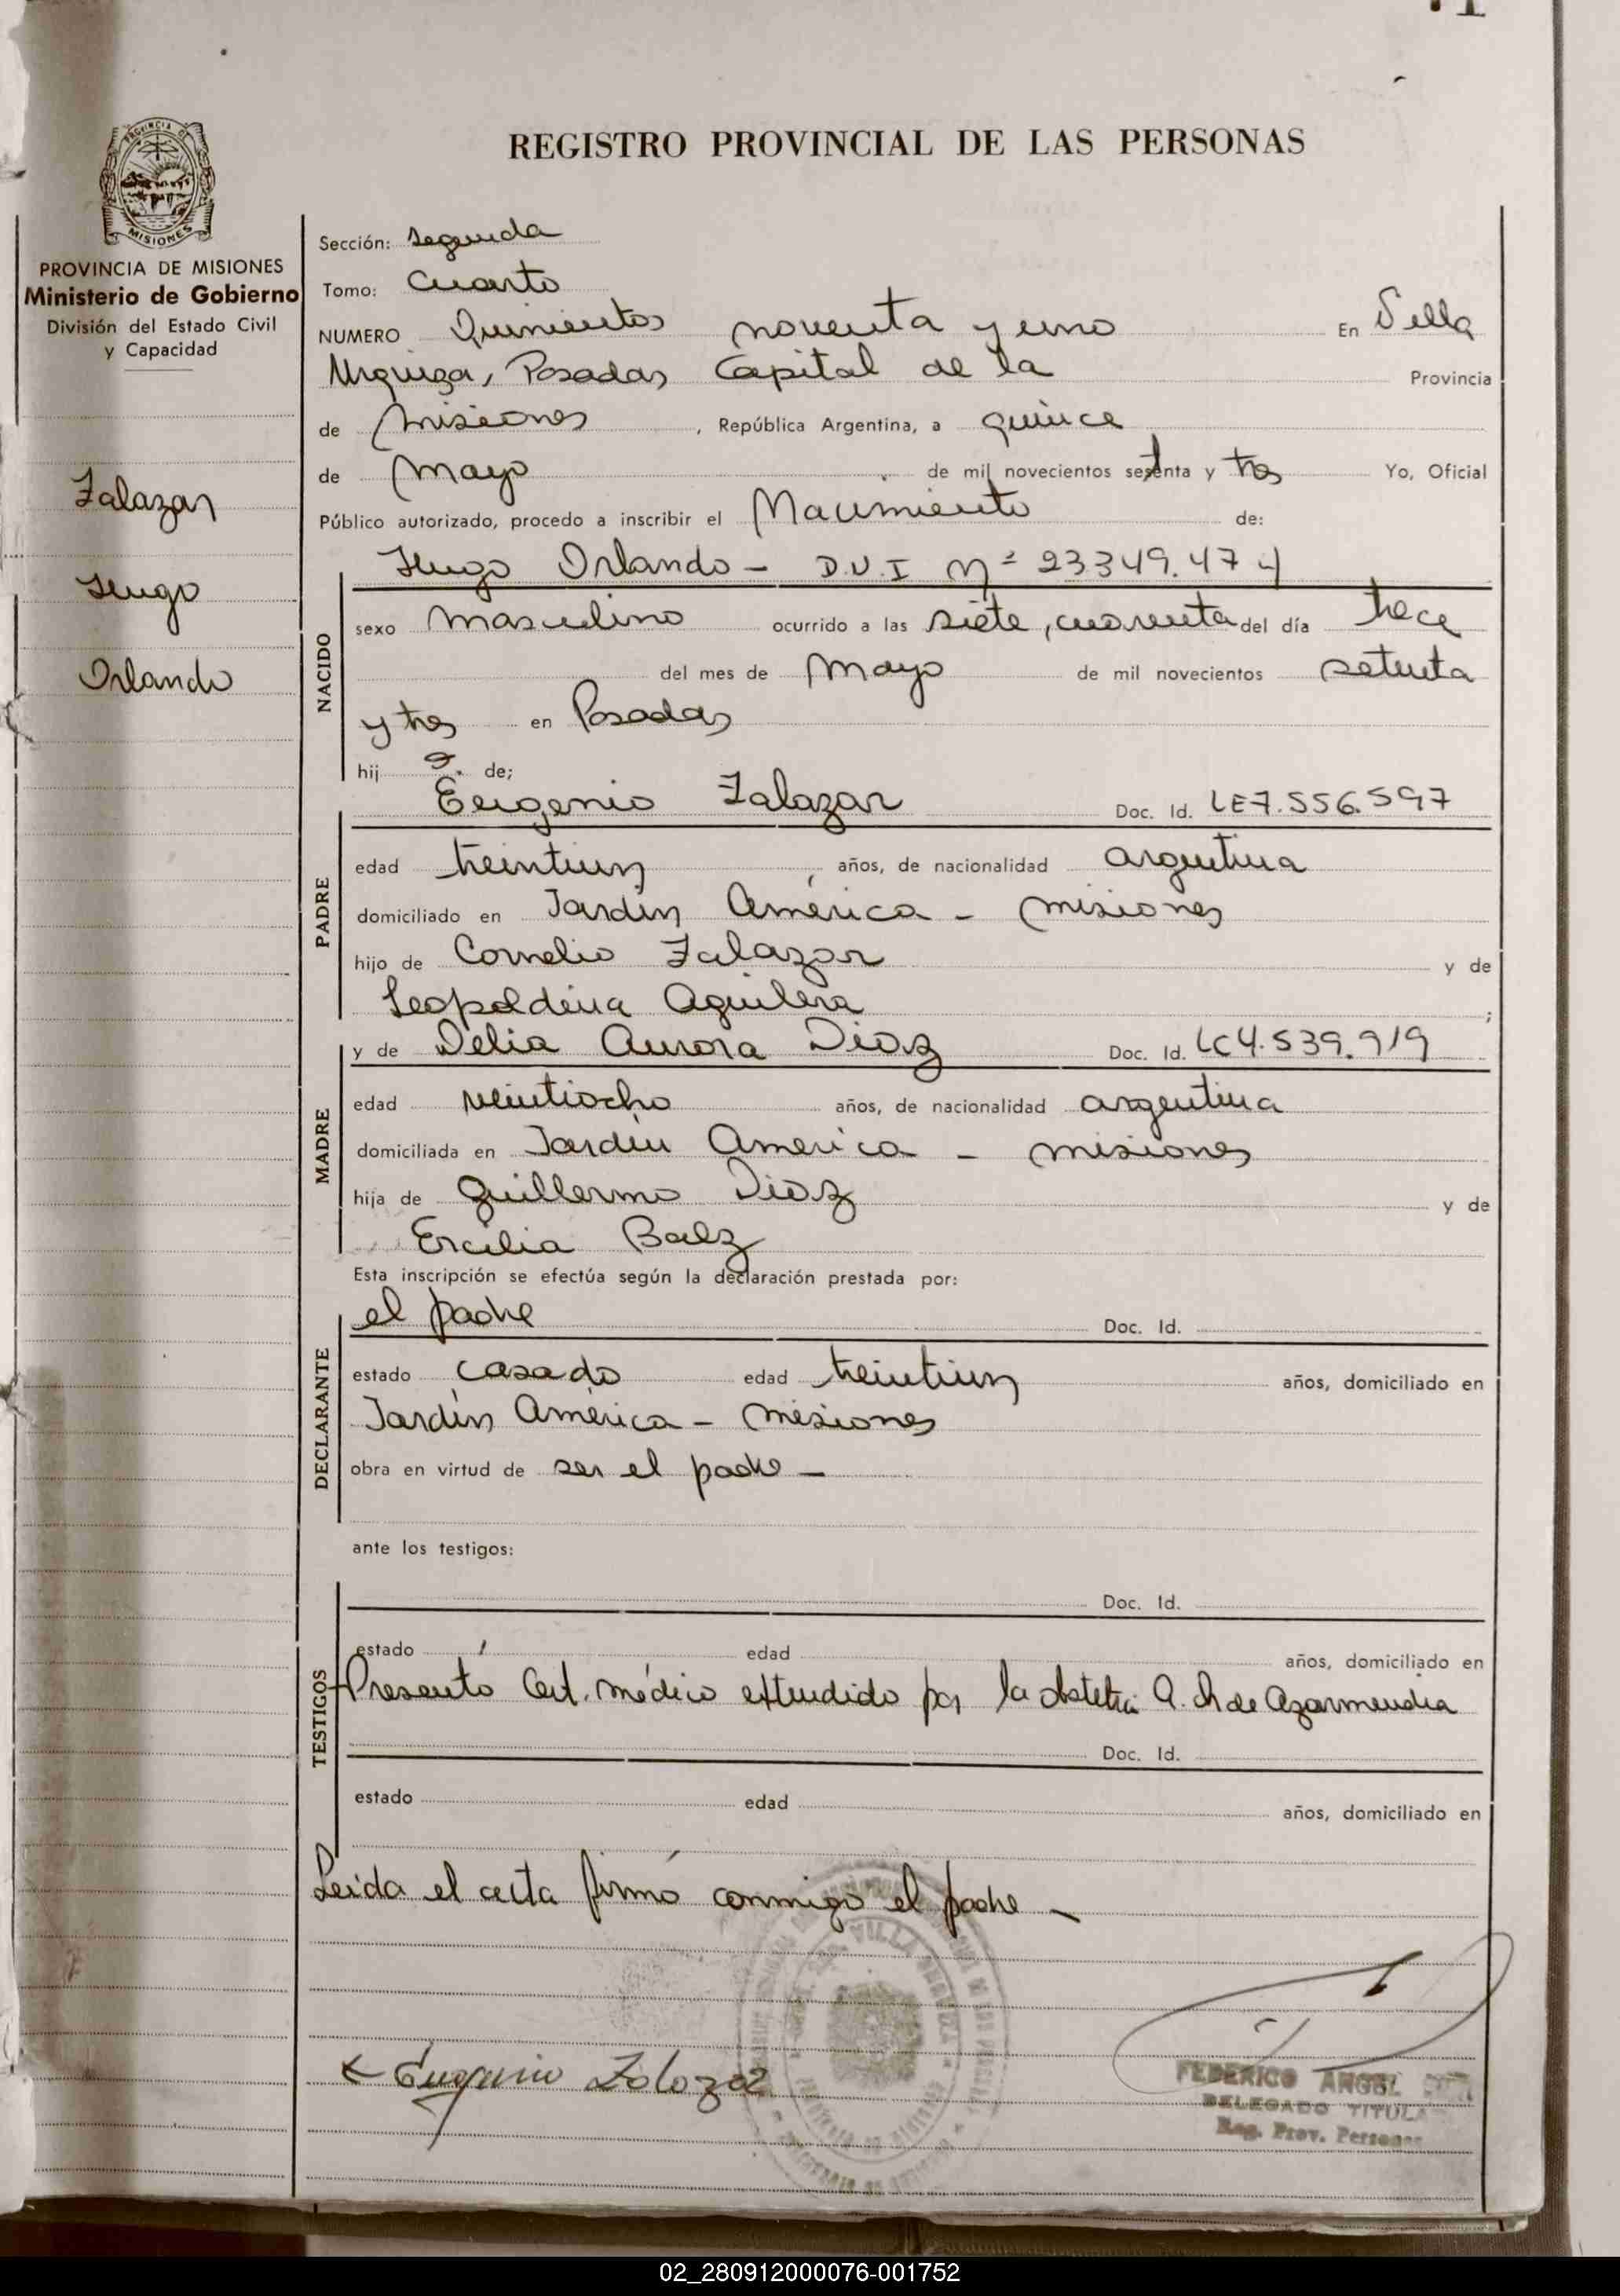 REGISTRO PROVINCIAL DE LAS PERSONAS
PROVINCIA DE MISIONES
Ministerio de Gobierno
División del Estado Civil
y Capacidad
Zalazar
Hugo
Orlando
Sección: Segunda
Tomo: Cuarto
NUMERO Quinientos noventa y uno En Villa
Urquiza, Posadas Capital de la Provincia
de Misiones, República Argentina, a quince
de Mayo de mil novecientos setenta y tres Yo, Oficial
Público autorizado, procedo a inscribir el Nacimiento de:
Hugo Orlando - D.N.I Nº 23349.474
NACIDO
sexo masculino ocurrido a las siete, cuarenta del día trece
del mes de Mayo de mil novecientos setenta
y tres en Posadas
hijo de;
Eugenio Zalazar Doc. Id. LE7.556.597
PADRE
edad treintiun años, de nacionalidad argentina
domiciliado en Jardín América - Misiones
hijo de Cornelio Zalazar y de
Leopoldina Aguilera;
y de Delia Aurora Diaz Doc. Id. LC4.539.919
MADRE
edad veintiocho años, de nacionalidad argentina
domiciliada en Jardín América - Misiones
hija de Guillermo Diaz y de
Ercilia Baez
Esta inscripción se efectúa según la declaración prestada por:
el padre Doc. Id.
DECLARANTE
estado casado edad treintiun años, domiciliado en
Jardín América - Misiones
obra en virtud de ser el padre -
ante los testigos:
Doc. Id.
TESTIGOS
estado edad años, domiciliado en
Presento Cert. médico extendido por la obstetra A. Ch de Azarmendia
Doc. Id.
estado edad años, domiciliado en
Leida el acta firmó conmigo el padre -
Eugenio Zalazar
FEDERICO ANGEL
DELEGADO TITULAR
Reg. Prov. Personas
02_280912000076-001752